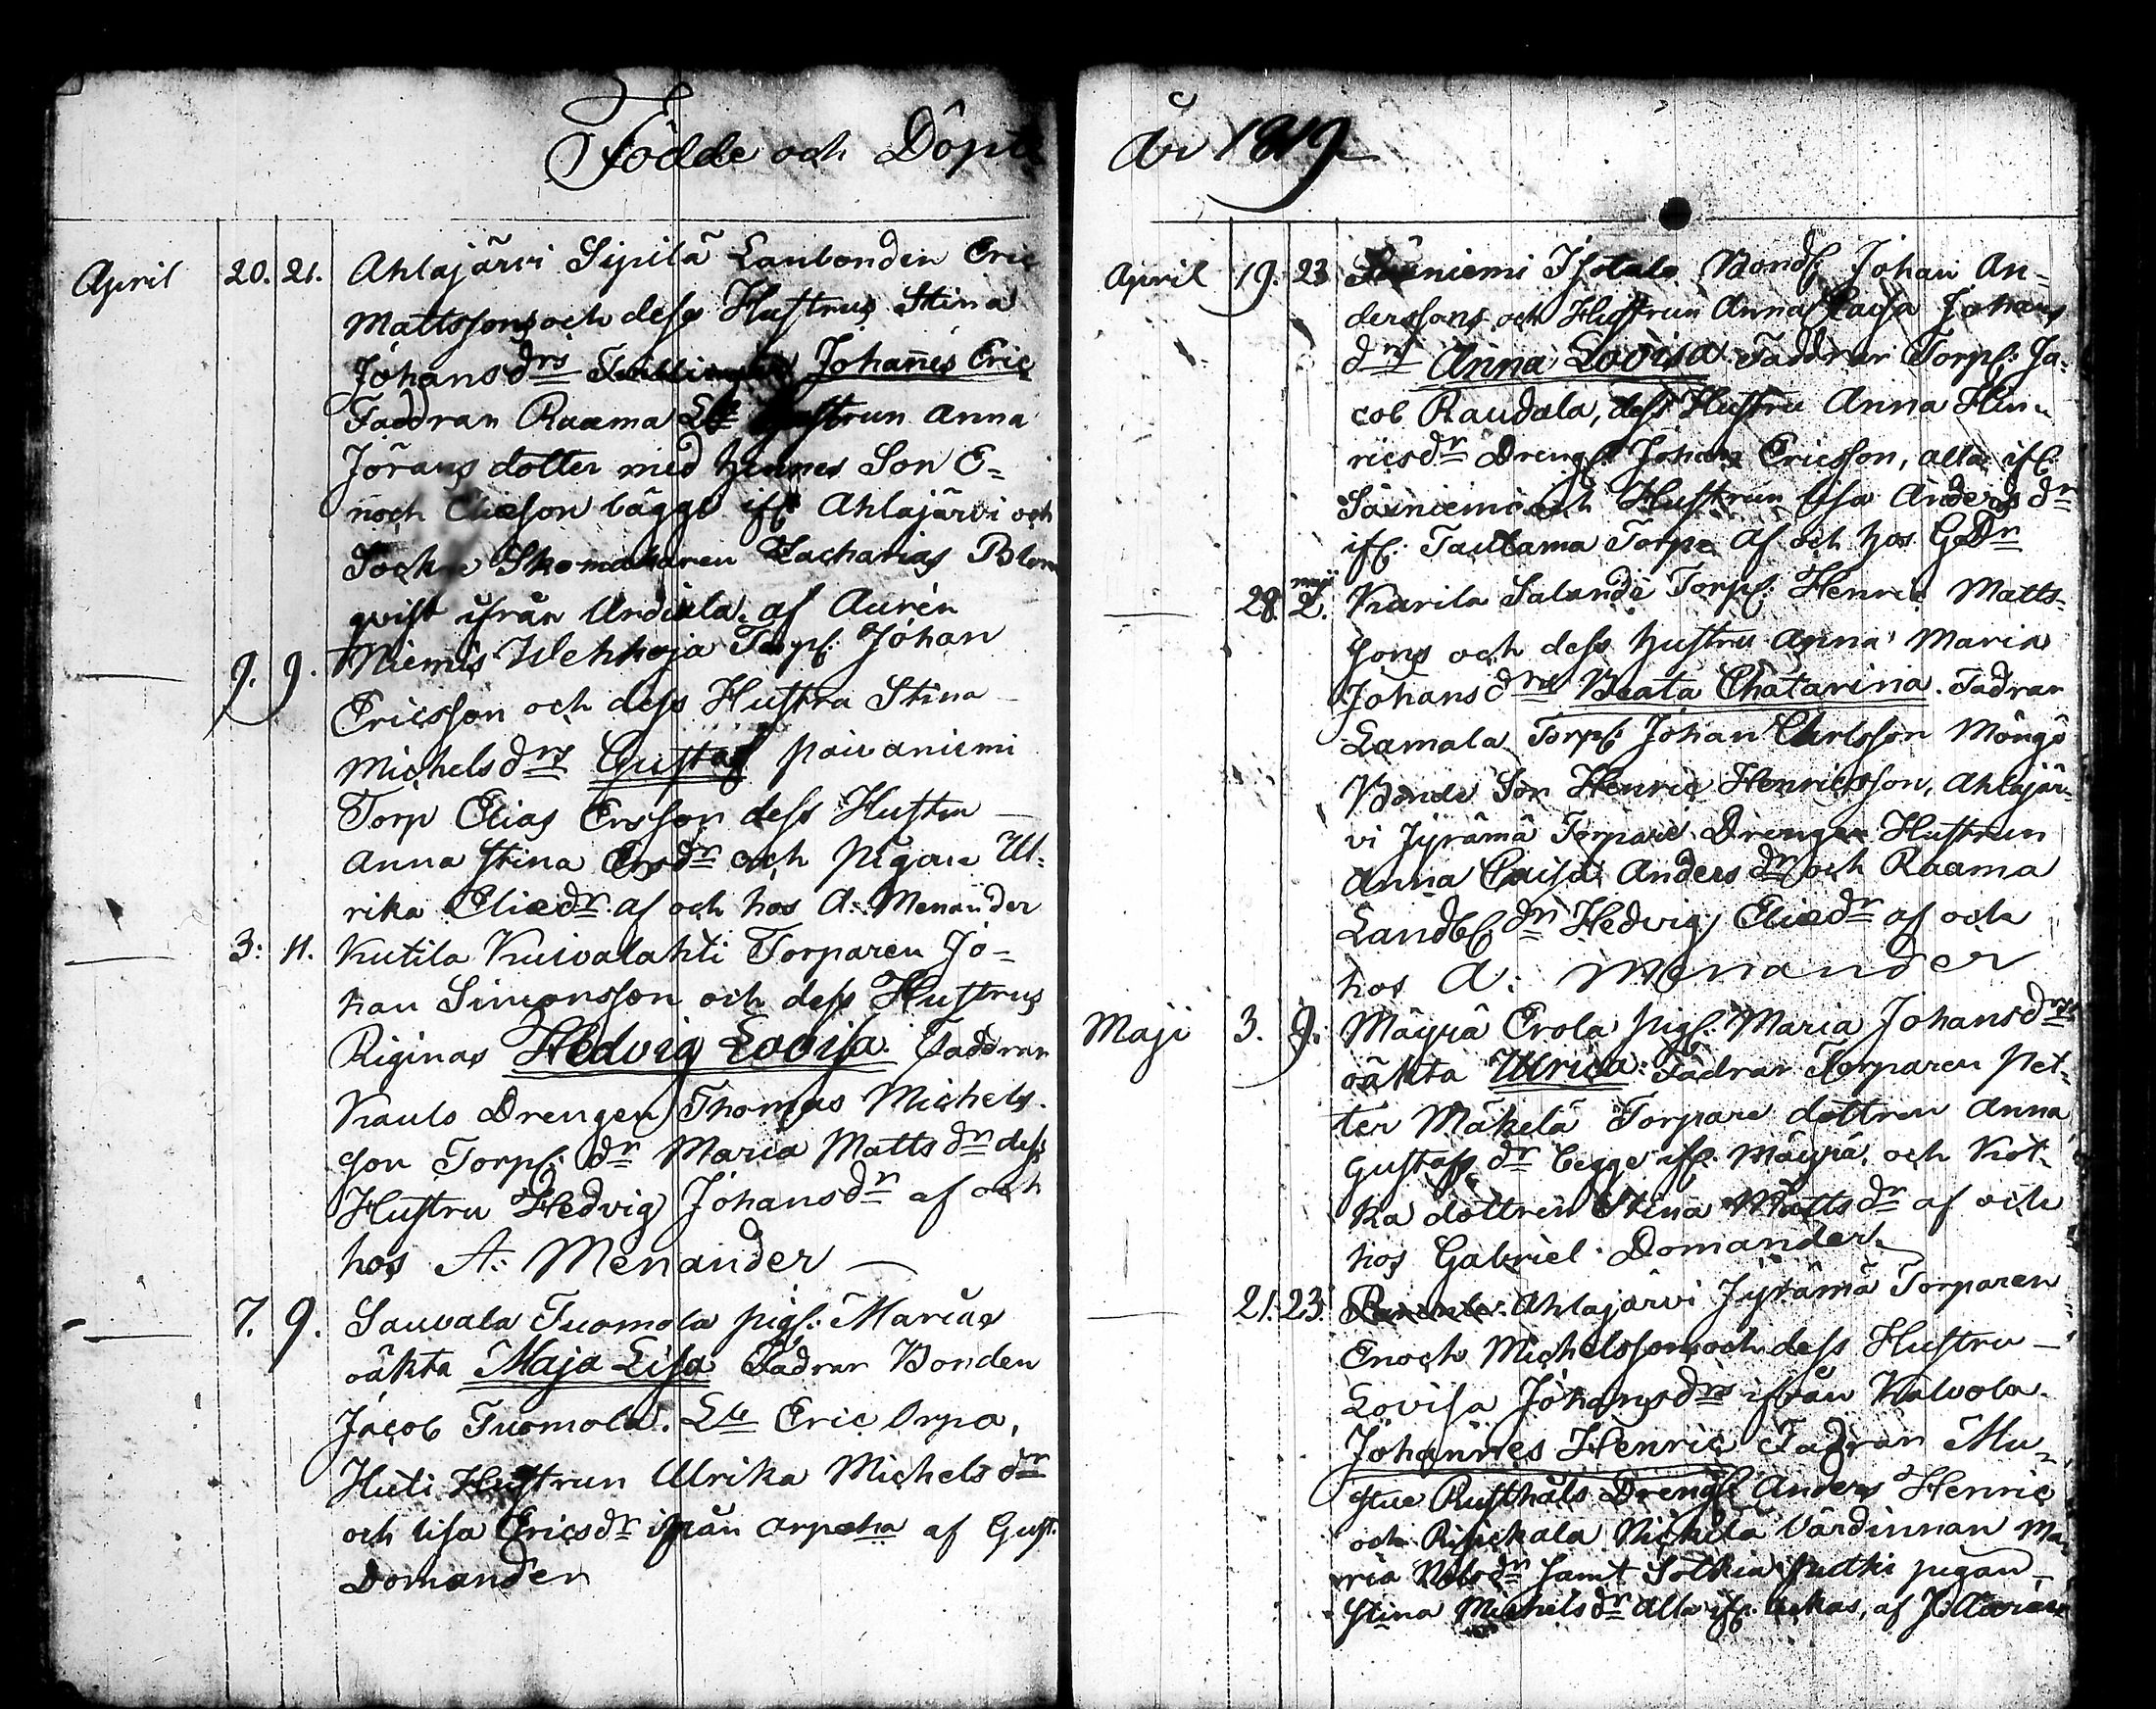 Födde och Döpte
April 20. 21. Ahlajärvi Sipilä Lanbonden Eric
Mattssons och dess Hustrus Stina
Johans drs Johañes Eric
Faddran Raama Hustrun Anna
Jörans dotter med hennes Son E-
noch Eliæson bägge if: Ahlajärvi och
Sockne Skomakaren Zacharias Blom
qvist ifrån Urdiala. af Aurén
9. 9. Niemis Wehkoja Torp: Johan
Ericsson och dess Hustru Stina
Michels drs Gustaf päivaniemi
Torp Elias Ersson dess Hustru
Anna Stina Ersdr och Pigan Ul-
rika Eliædr. af och hos A: Menander
3: 11. Kutila Kuivalahti Torparen Jo-
han Simonsson och dess Hustrus
Riginas Hedvig Lovisa Faddran
Kaulo Drengen Thomas Michels
son Torp: dr Maria Matts dr dess
Hustru Hedvig Johansdr af och
hos A: Menander
7. 9. Sauvala Tuomola pig: Marias
oäkta Maja Lisa Fadrar Bonden
Jacob Tuomola. Eric Orpo,
Huti Hustrun Ulrika Michels dr
och Lisa Ericsdr ifrån af Gust.
Domander
År 1819
April 19. 23 Säiniemi Isotalo Bond: Johan An-
derssons och Hustrun Anna Caisa Johans
drs Anna Lovisa Faddrar Torp: Ja-
cob Raudala, dess Hustru Anna Hin-
ricsdr Dreng: Johan Ericsson, alla if:
Säiniemi och Hustrun Lisa Anders dr
if: Tautama Torpa af och hos G:Dr
28. maji 2. Karila Salandi Torp: Henric Matts-
sons och dess hustru Anna Maria
Johans drs Beata Chatarina. Fadrar
Lamala Torp: Johan Carlsson Möngö
Bonde Son Henric Henricsson, Ahlajär-
vi Jyrämä Torpare Drengen Hustrun
Anna Caisa Anders dr och Raama
Landb: dr Hedvig Eliædr af och
hos A: Menander
Maji 3. 9. Mäyrä Erola pig: Maria Johansdrs
oäkta Ulrica: Fadrar Torparen Pet-
ter Mäkelä Torpare dottren Anna
Gustafs dr begge if: Mäyrä, och Kot-
ka dottren Stina Matts dr af och
hos Gabriel Domander
21. 23. Ahlajärvi Jyrämä Torparen
Enoch Michelsson och dess Hustru
Lovisa Johansdrs ifrån Kalvola
Johannes Henric Fadran Mu-
stue Rusthåls Dreng: Anders Henric
och Nickilä Värdinnan Ma-
ria samt pigan
Stina Michels dr Alla if: af J: